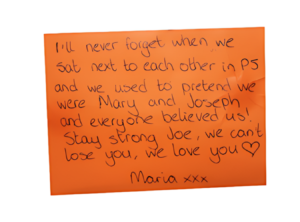 I'll never forget when we
sat next to each other in P5
and we used to pretend we
were Mary and Joseph
and everyone believed us!
Stay strong Joe, we can't
lose you, we love you ♡
Maria xxx